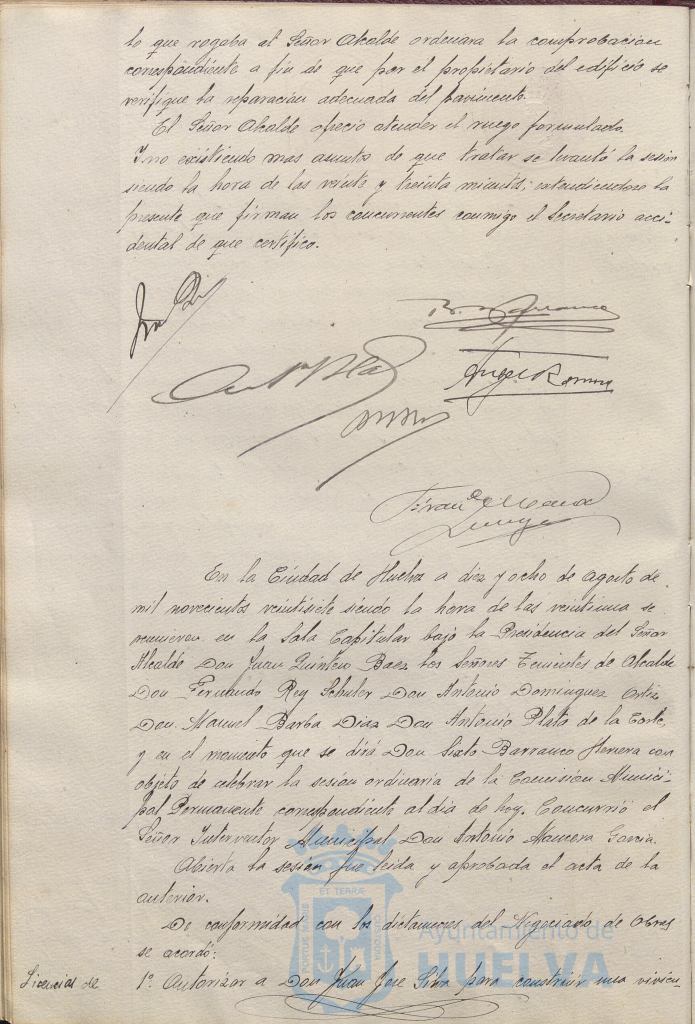 lo que rogaba al Señor Alcalde ordenara la comprobacion
correspondiente a fin de que por el propietario del edificio se
verifique la reparacion adecuada del pavimento.
El Señor Alcalde ofrecio atender el ruego formulado.
Y no existiendo mas asuntos de que tratar se levantó la sesion
siendo la hora de las veinte y treinta minutos; extendiendose la
presente que firman los concurrentes conmigo el Secretario acci-
dental de que certifico.
Angel Romero
En la Ciudad de Huelva a diez y ocho de Agosto de
mil novecientos veintisiete siendo la hora de las veintiuna se
reunieron en la Sala Capitular bajo la Presidencia del Señor
Alcalde Don Juan Quintero Baez los Señores Tenientes de Alcalde
Don Fernando Rey Schuler Don Antonio Dominguez Ortiz
Don Manuel Barba Diaz Don Antonio Plata de la Corte,
y en el momento que se dirá Don Sixto Barranco Herrera con
objeto de celebrar la sesion ordinaria de la Comision Munici-
pal Permanente correspondiente al dia de hoy. Concurrió el
Señor Interventor Municipal Don Antonio Mancera Garcia.
Abierta la sesion fue leida y aprobada el acta de la
anterior.
De conformidad con los dictamenes del Negociado de Obras
se acordó:
Licencias de 1º. Autorizar a Don Juan Jose Silva para construir una vivien-
PORTUS MARIS
ET TERRAE
CUSTODIA
Ayuntamiento de
HUELVA